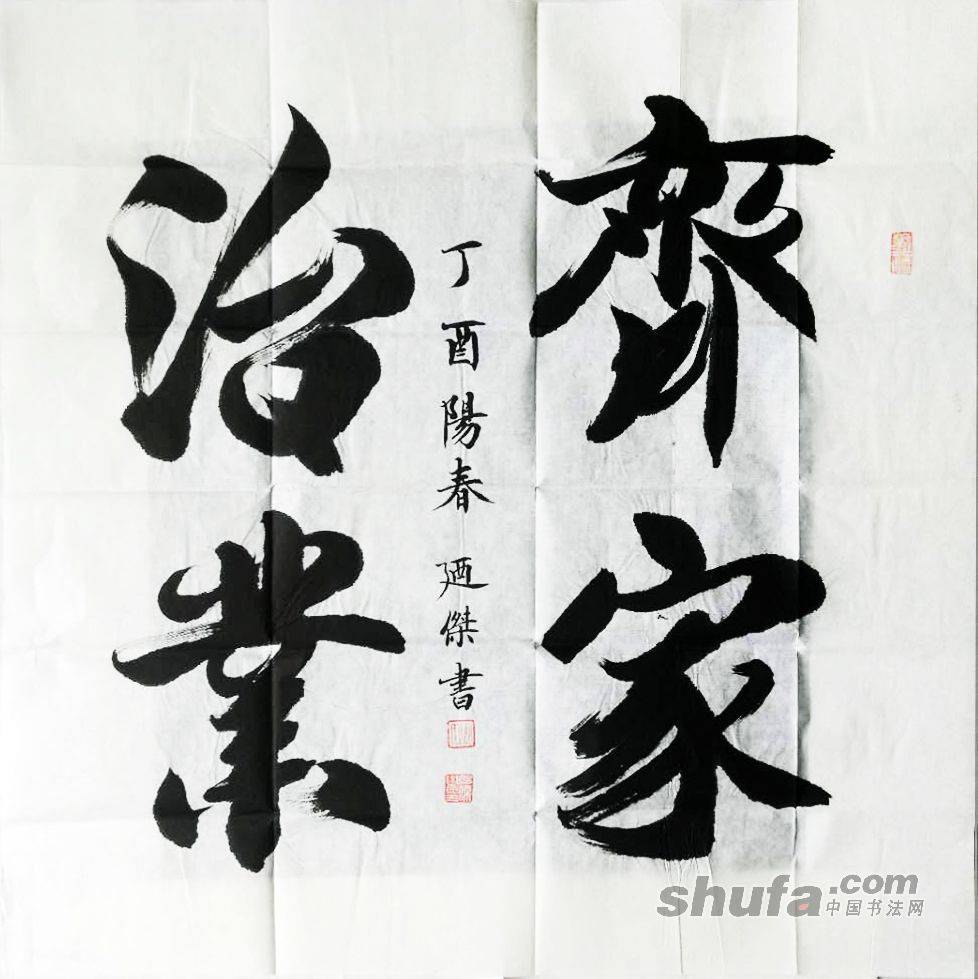 齊家
治業
丁酉陽春 廼傑書
shufa.com
中国书法网